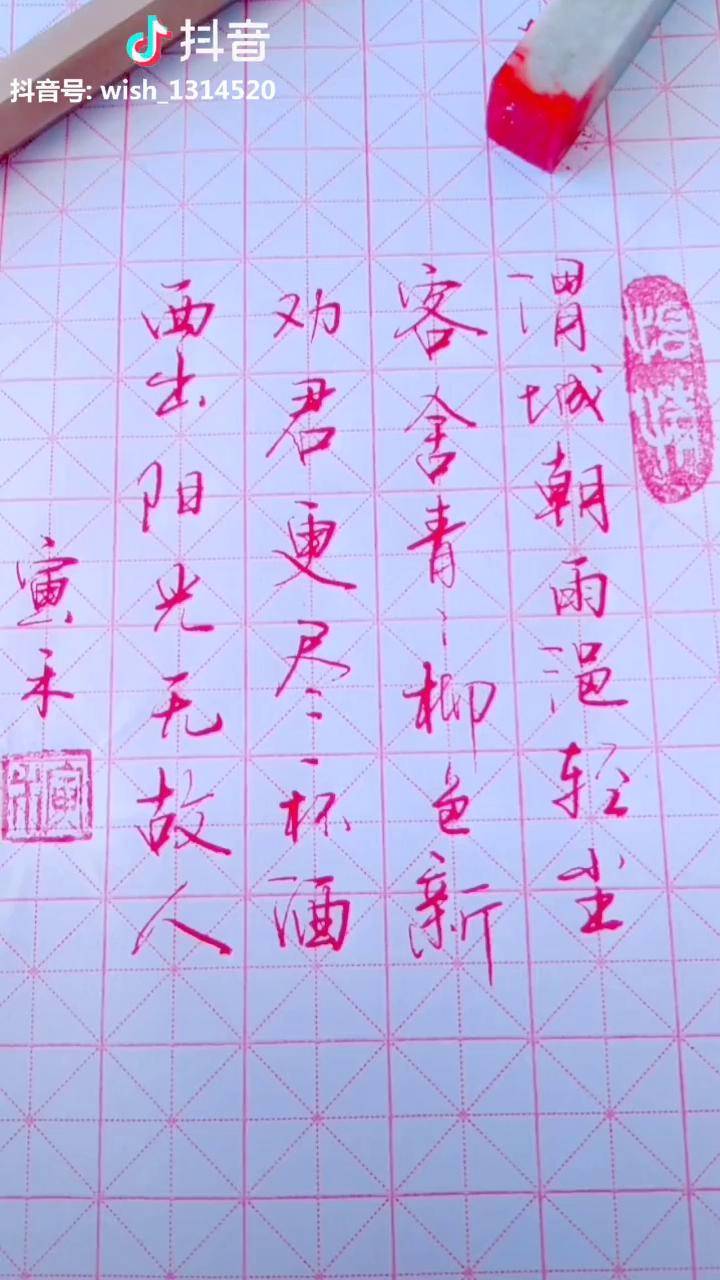 抖音
抖音号: wish_1314520
渭城朝雨浥轻尘
客舍青〻柳色新
劝君更尽一杯酒
西出阳光无故人
寅禾